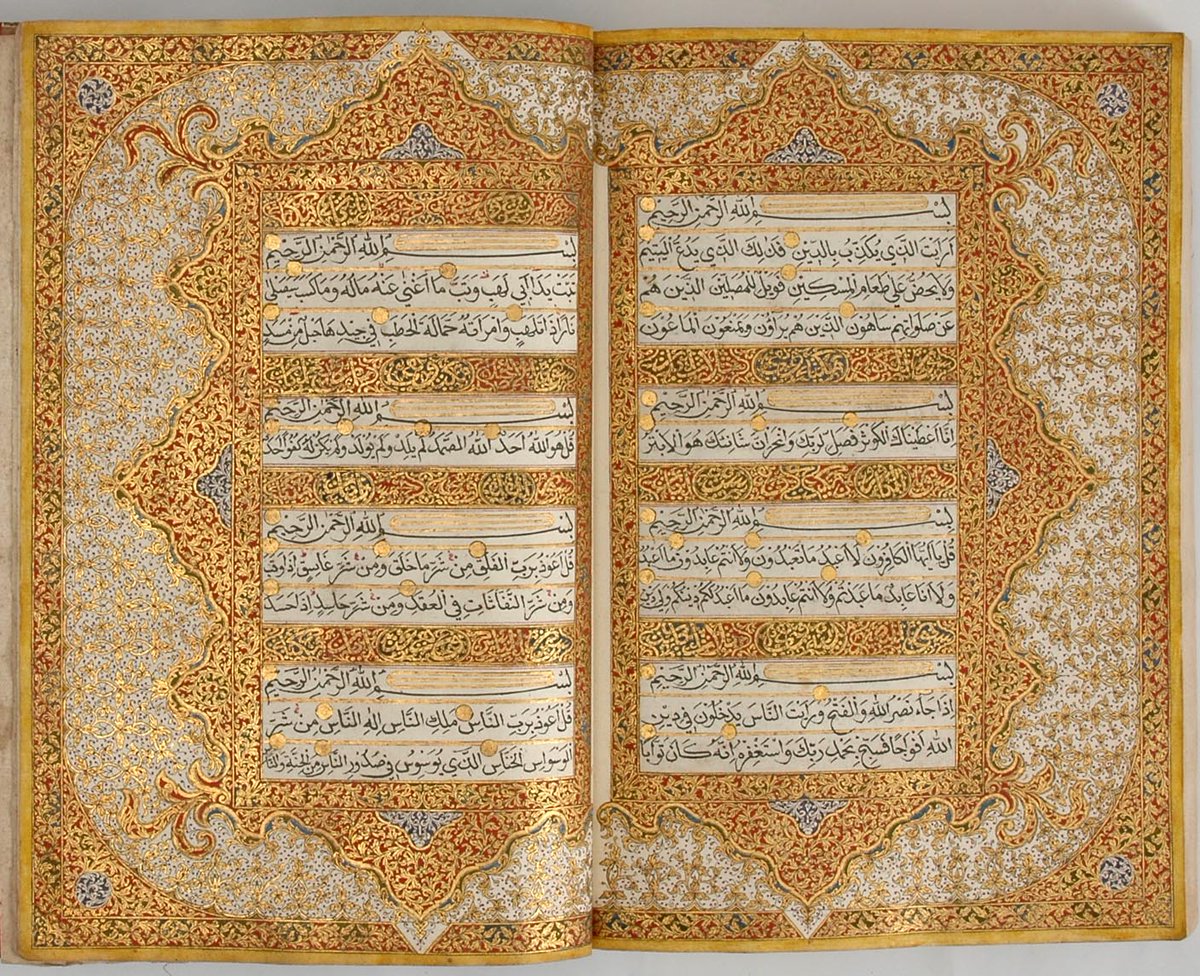 بسم الله الرحمن الرحيم
ارايت الذي يكذب بالدين فذلك الذي يدع اليتيم
ولا يحض على طعام المسكين فويل للمصلين الذين هم
عن صلواتهم ساهون الذين هم يراؤن ويمنعون الماعون
بسم الله الرحمن الرحيم
انا اعطيناك الكوثر فصل لربك وانحر ان شانئك هو الابتر
بسم الله الرحمن الرحيم
قل يا ايها الكافرون لا اعبد ما تعبدون ولا انتم عابدون ما اعبد
ولا انا عابد ما عبدتم ولا انتم عابدون ما اعبد لكم دينكم ولي دين
بسم الله الرحمن الرحيم
اذا جاء نصر الله والفتح ورايت الناس يدخلون في دين
الله افواجا فسبح بحمد ربك واستغفره انه كان توابا
بسم الله الرحمن الرحيم
تبت يدا ابي لهب وتب ما اغنى عنه ماله وما كسب سيصلى
نارا ذات لهب وامراته حمالة الحطب في جيدها حبل من مسد
بسم الله الرحمن الرحيم
قل هو الله احد الله الصمد لم يلد ولم يولد ولم يكن له كفوا احد
بسم الله الرحمن الرحيم
قل اعوذ برب الفلق من شر ما خلق ومن شر غاسق اذا وقب
ومن شر النفاثات في العقد ومن شر حاسد اذا حسد
بسم الله الرحمن الرحيم
قل اعوذ برب الناس ملك الناس اله الناس من شر
الوسواس الخناس الذي يوسوس في صدور الناس من الجنة والناس